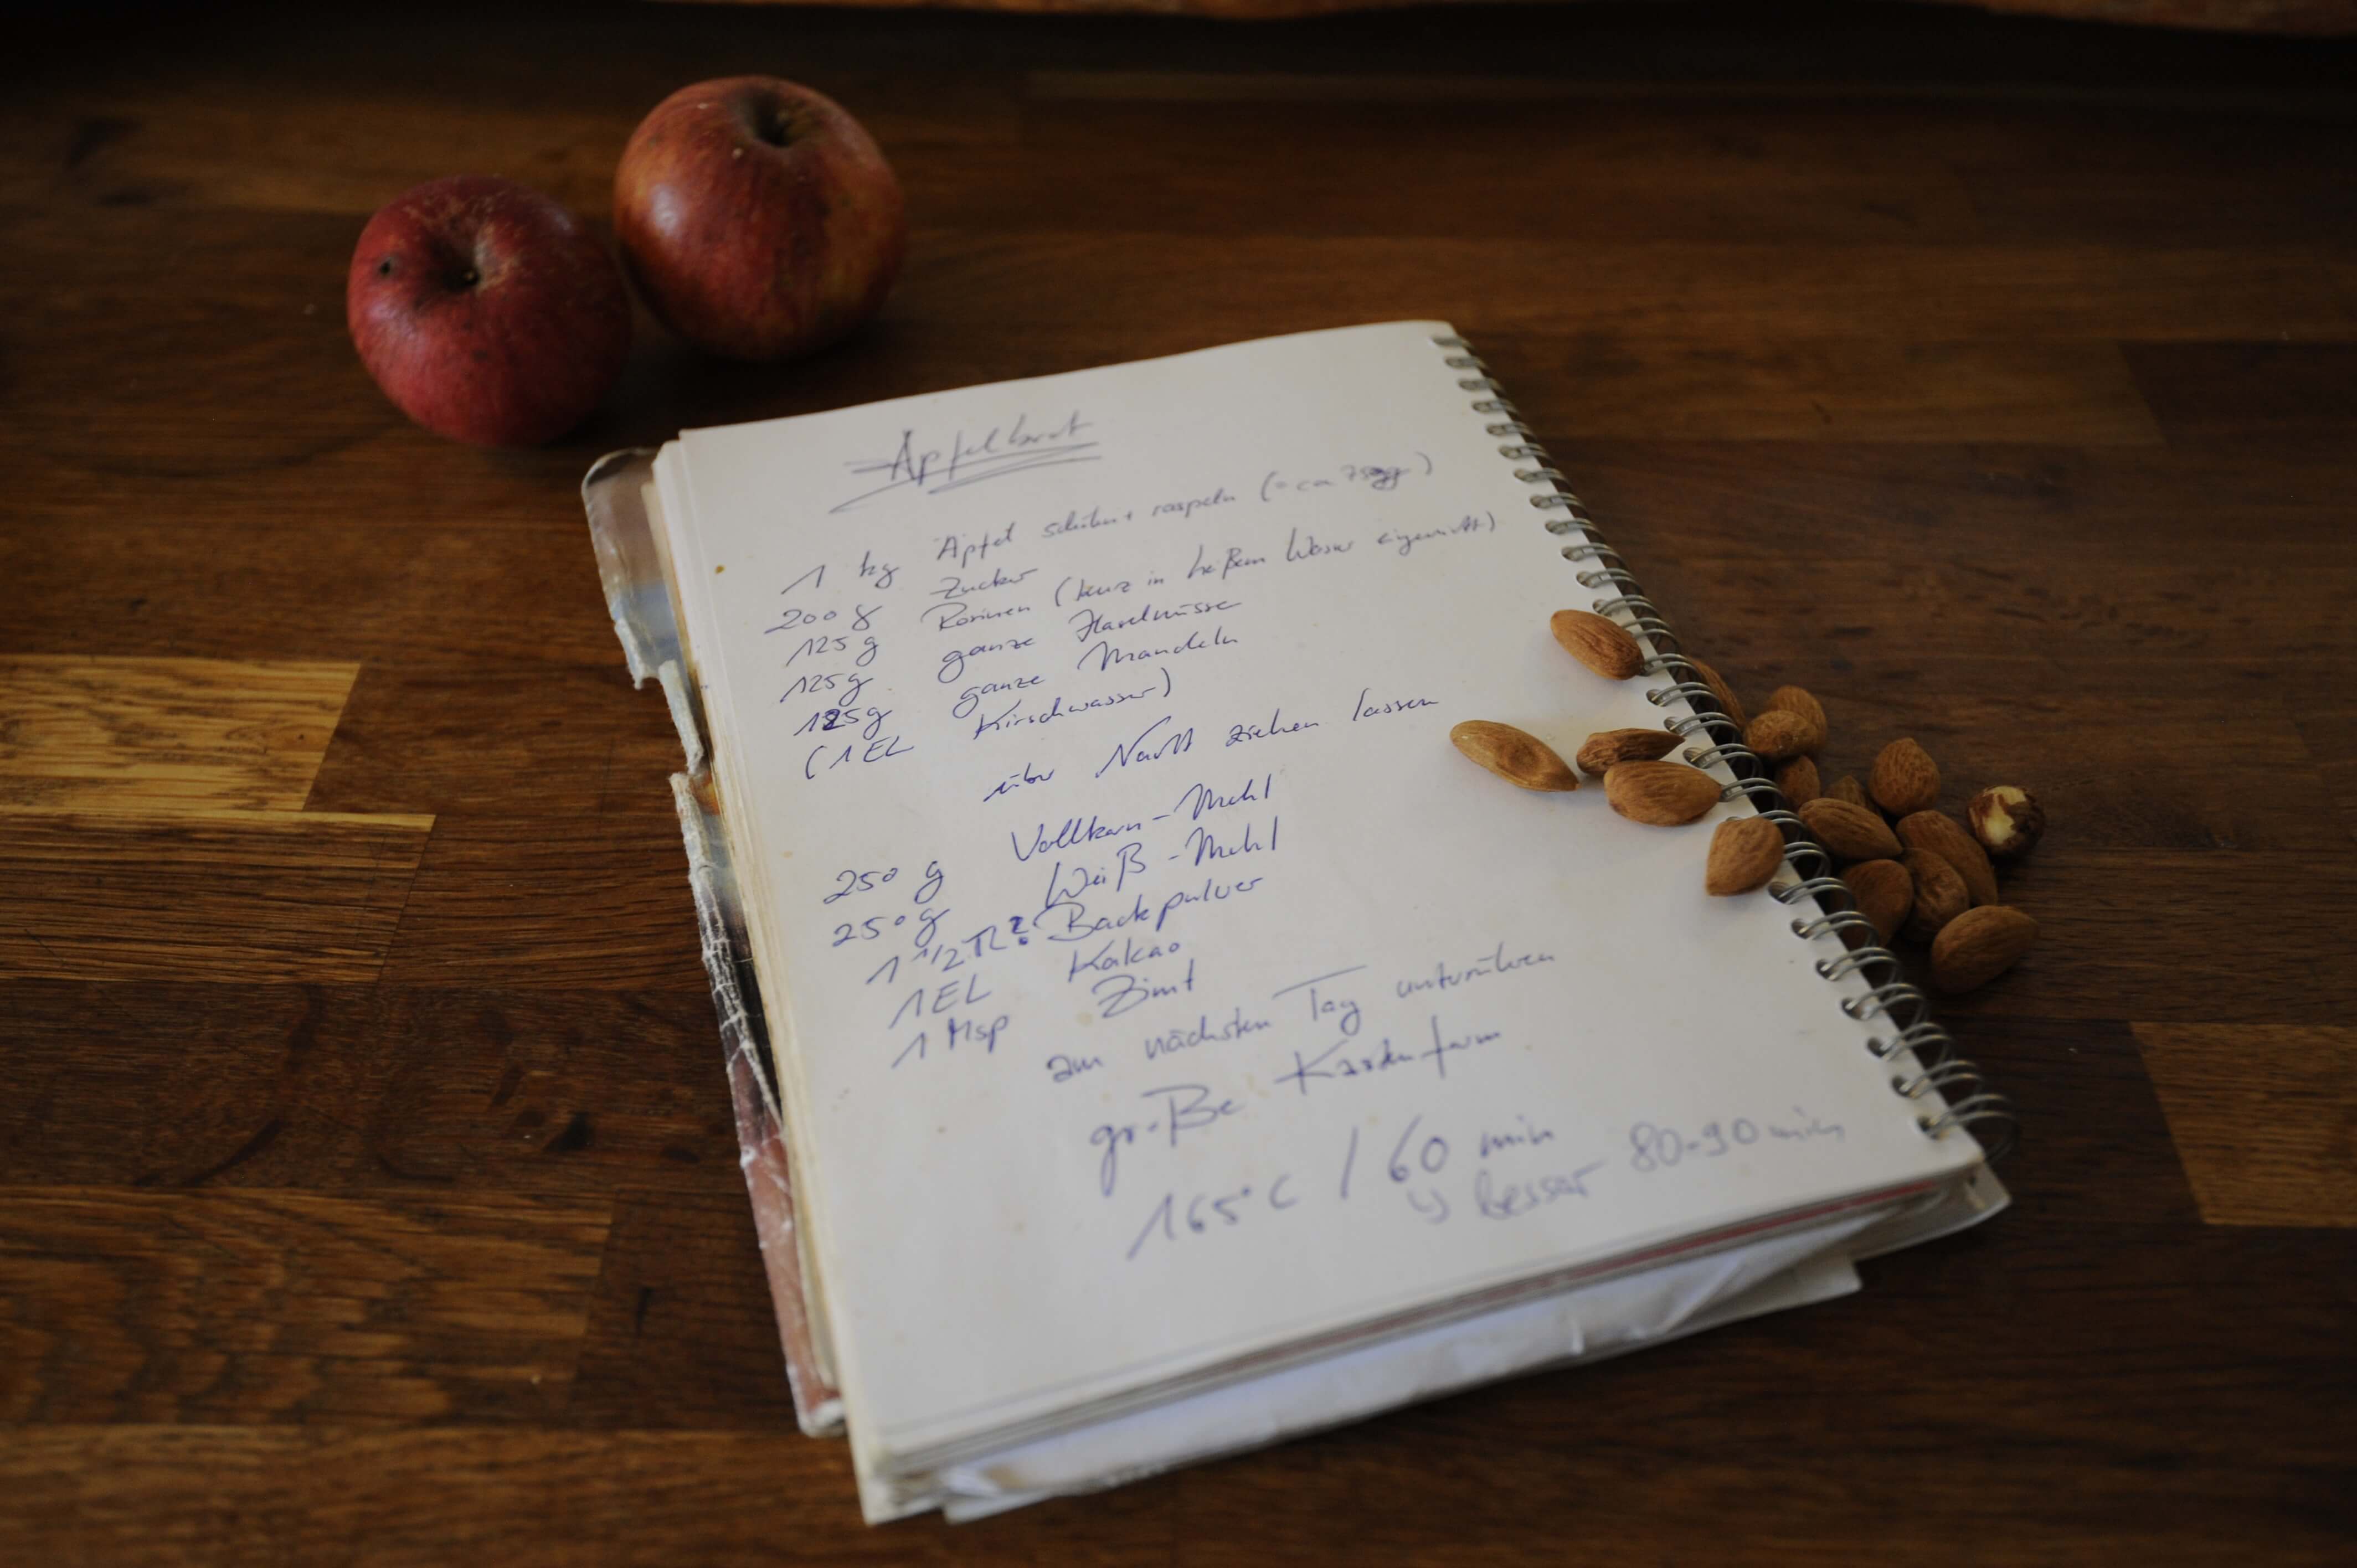 Apfelbrot
1 kg Äpfel schälen + raspeln (= ca 750g)
200 g Zucker
125 g Rosinen (kurz in heißem Wasser eingeweicht)
125 g ganze Haselnüsse
125 g ganze Mandeln
(1 EL Kirschwasser)
über Nacht ziehen lassen
250 g Vollkorn-Mehl
250 g Weiß-Mehl
1 1/2 TL? Backpulver
1 EL Kakao
1 Msp Zimt
am nächsten Tag unterrühren
große Kastenform
165°C / 60 min
↳ Besser 80-90 min